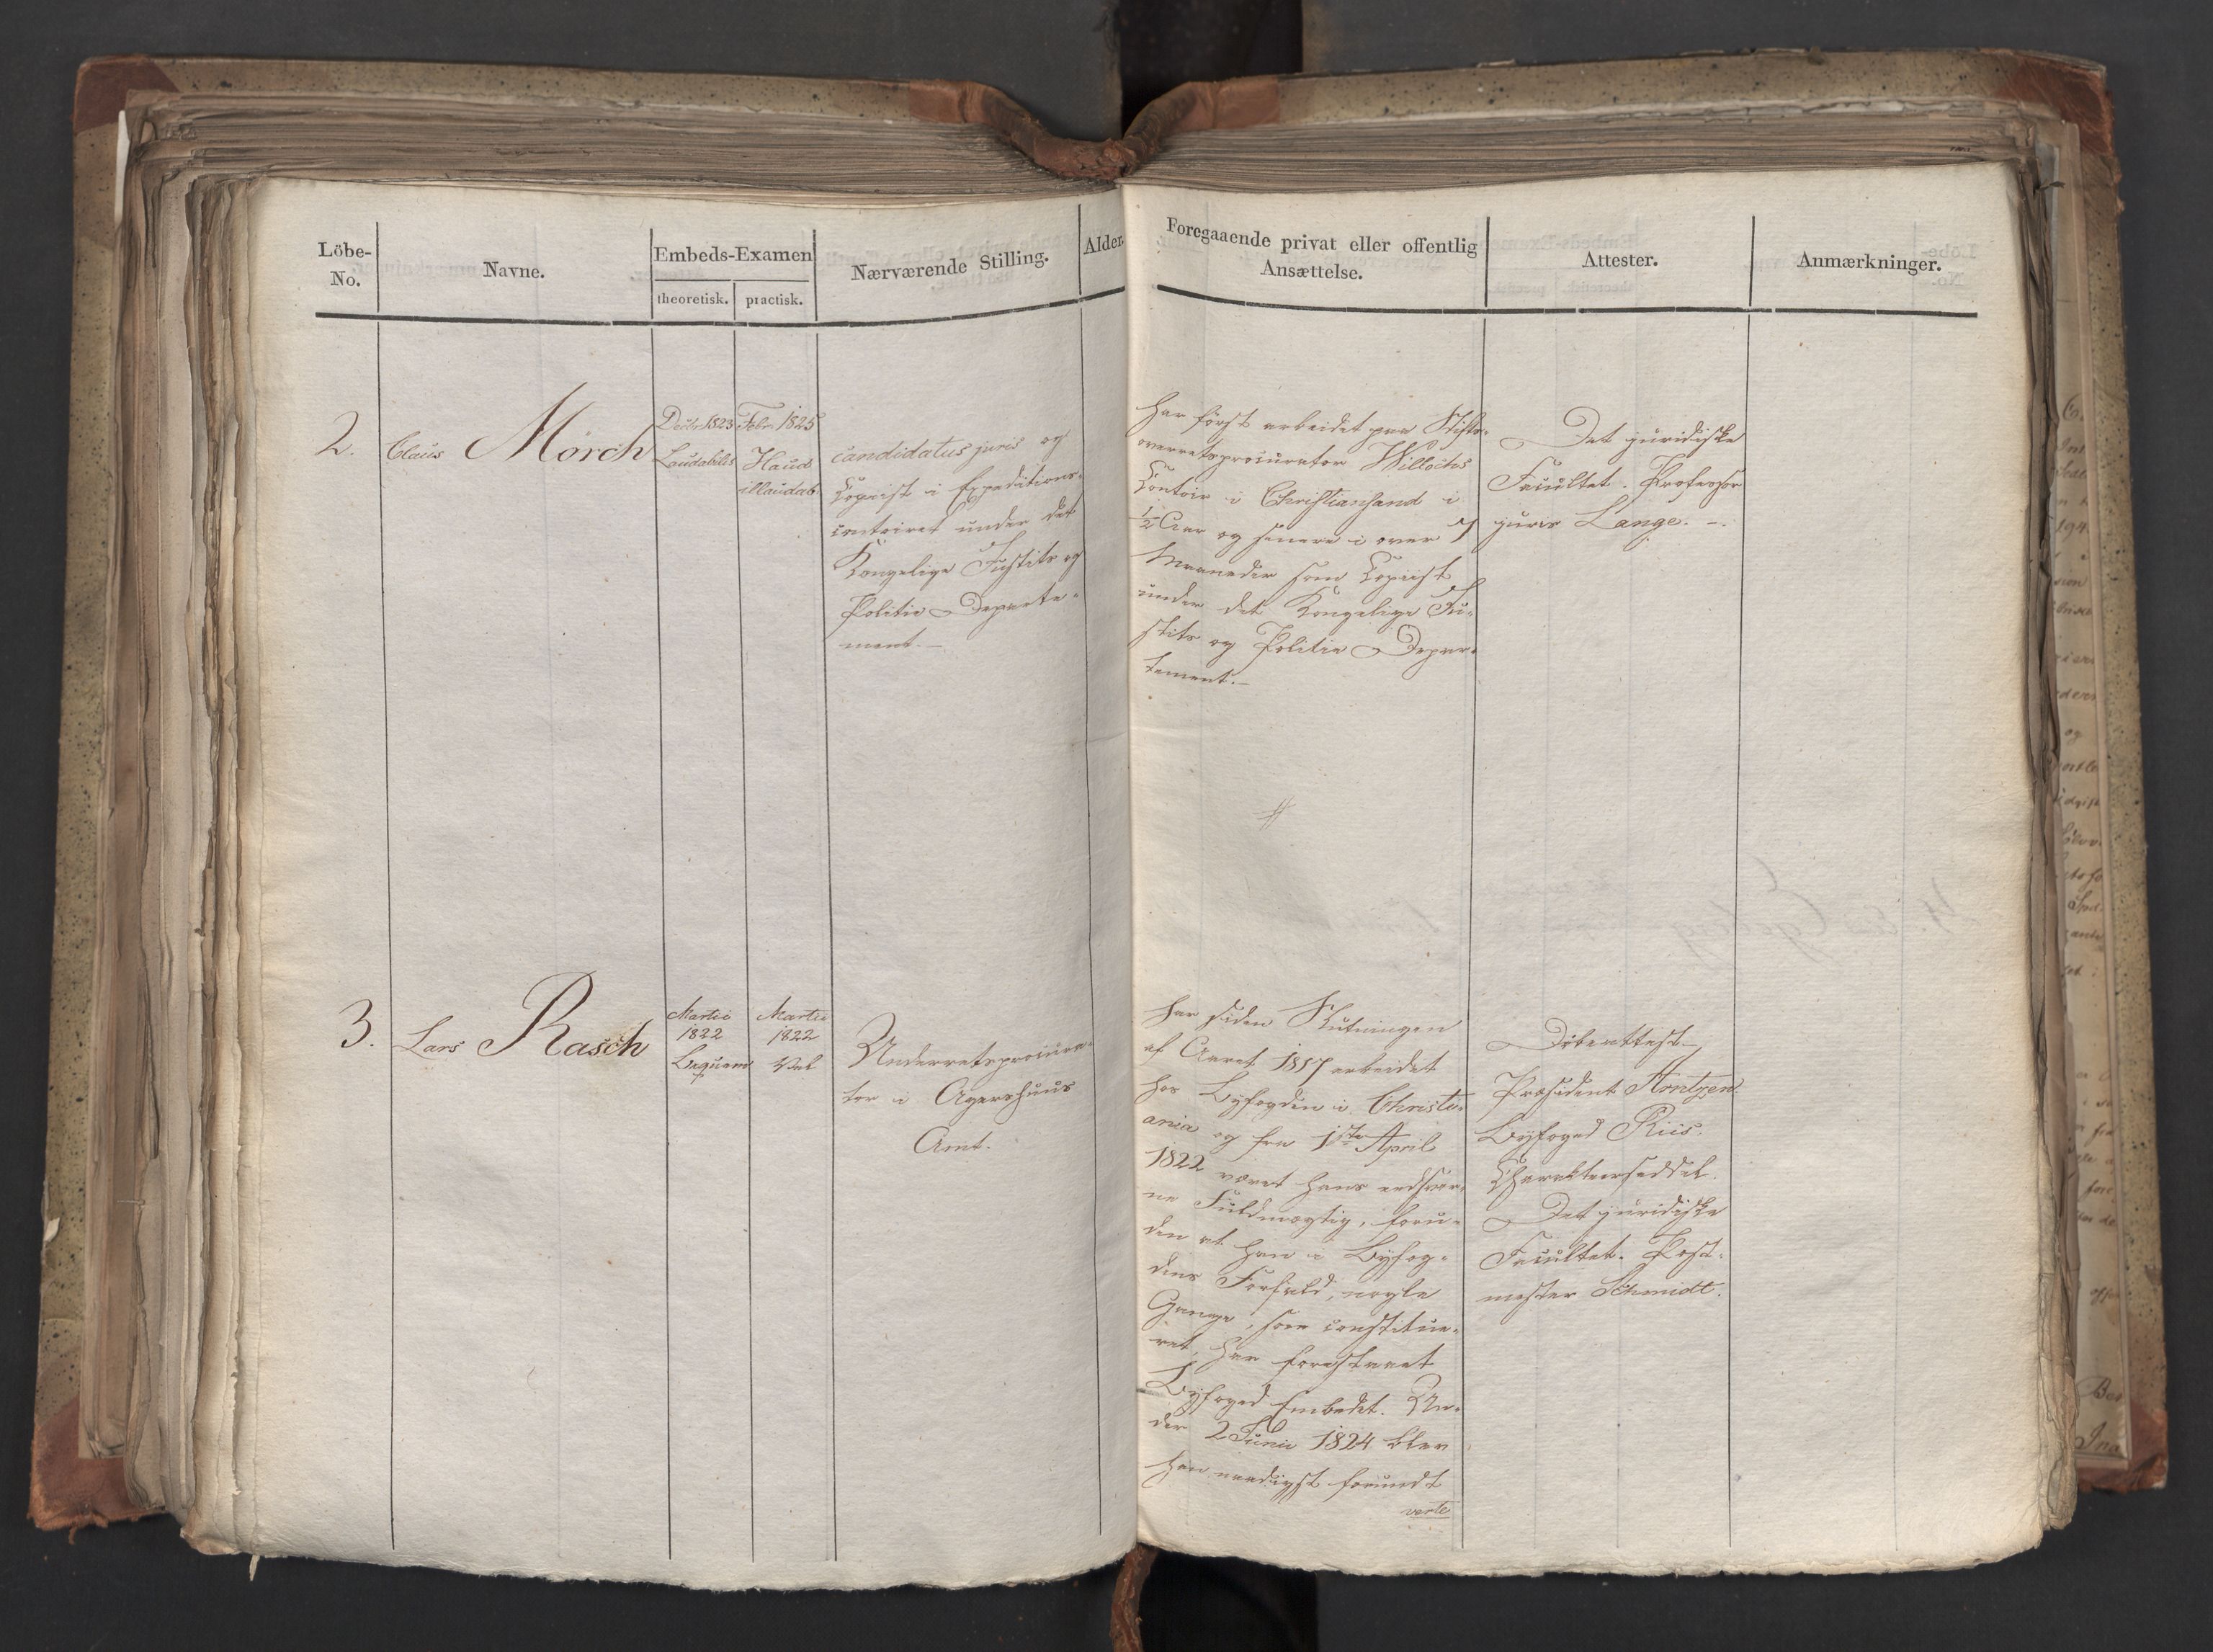 Löbe-
No.
Navne.
Embeds-Examen
theoretisk.
practisk.
Nærværende Stilling.
Alder.
Foregaaende privat eller offentlig
Ansættelse.
Attester.
Anmærkninger.
2.
Claus Mörch
Decbr 1823
Laudabilis
Febr. 1825
Haud
illaudab.
candidatus juris og
Copiist i Expeditions-
contoiret under det
Kongelige Justits og
Politie Departe-
ment.-
har först arbeidet paa Stifts-
overretsprocurator Willochs
Contoir i Christiansand i
1/2 Aar og senere i over 7
Maaneder som Copiist
under det Kongelige Ju-
stits og Politie Depar-
tement.-
Det juridiske
Facultet. Professor
juris Lange. -
#
3.
Lars Rasch
Martii
1822
Beqvem
Martii
1822
Vel
Underretsprocura-
tor i Agershuus
Amt.
har siden Slutningen
af Aaret 1817 arbeidet
hos Byfogden i Christi-
ania og fra 1ste April
1822 været hans edsvor-
ne Fuldmægtig, foru-
den at han i Byfog-
dens Forfald, nogle
Gange, som constitue-
ret, har forestaaet
Byfoged Embedet. Un-
der 2 Junii 1824 blev
han naadigst forundt
verte
Döbeattest.
Præsident Arntzen.
Byfoged Riis.
Charakteerseddel.
Det juridiske
Facultet. Post-
mester Schmidt.